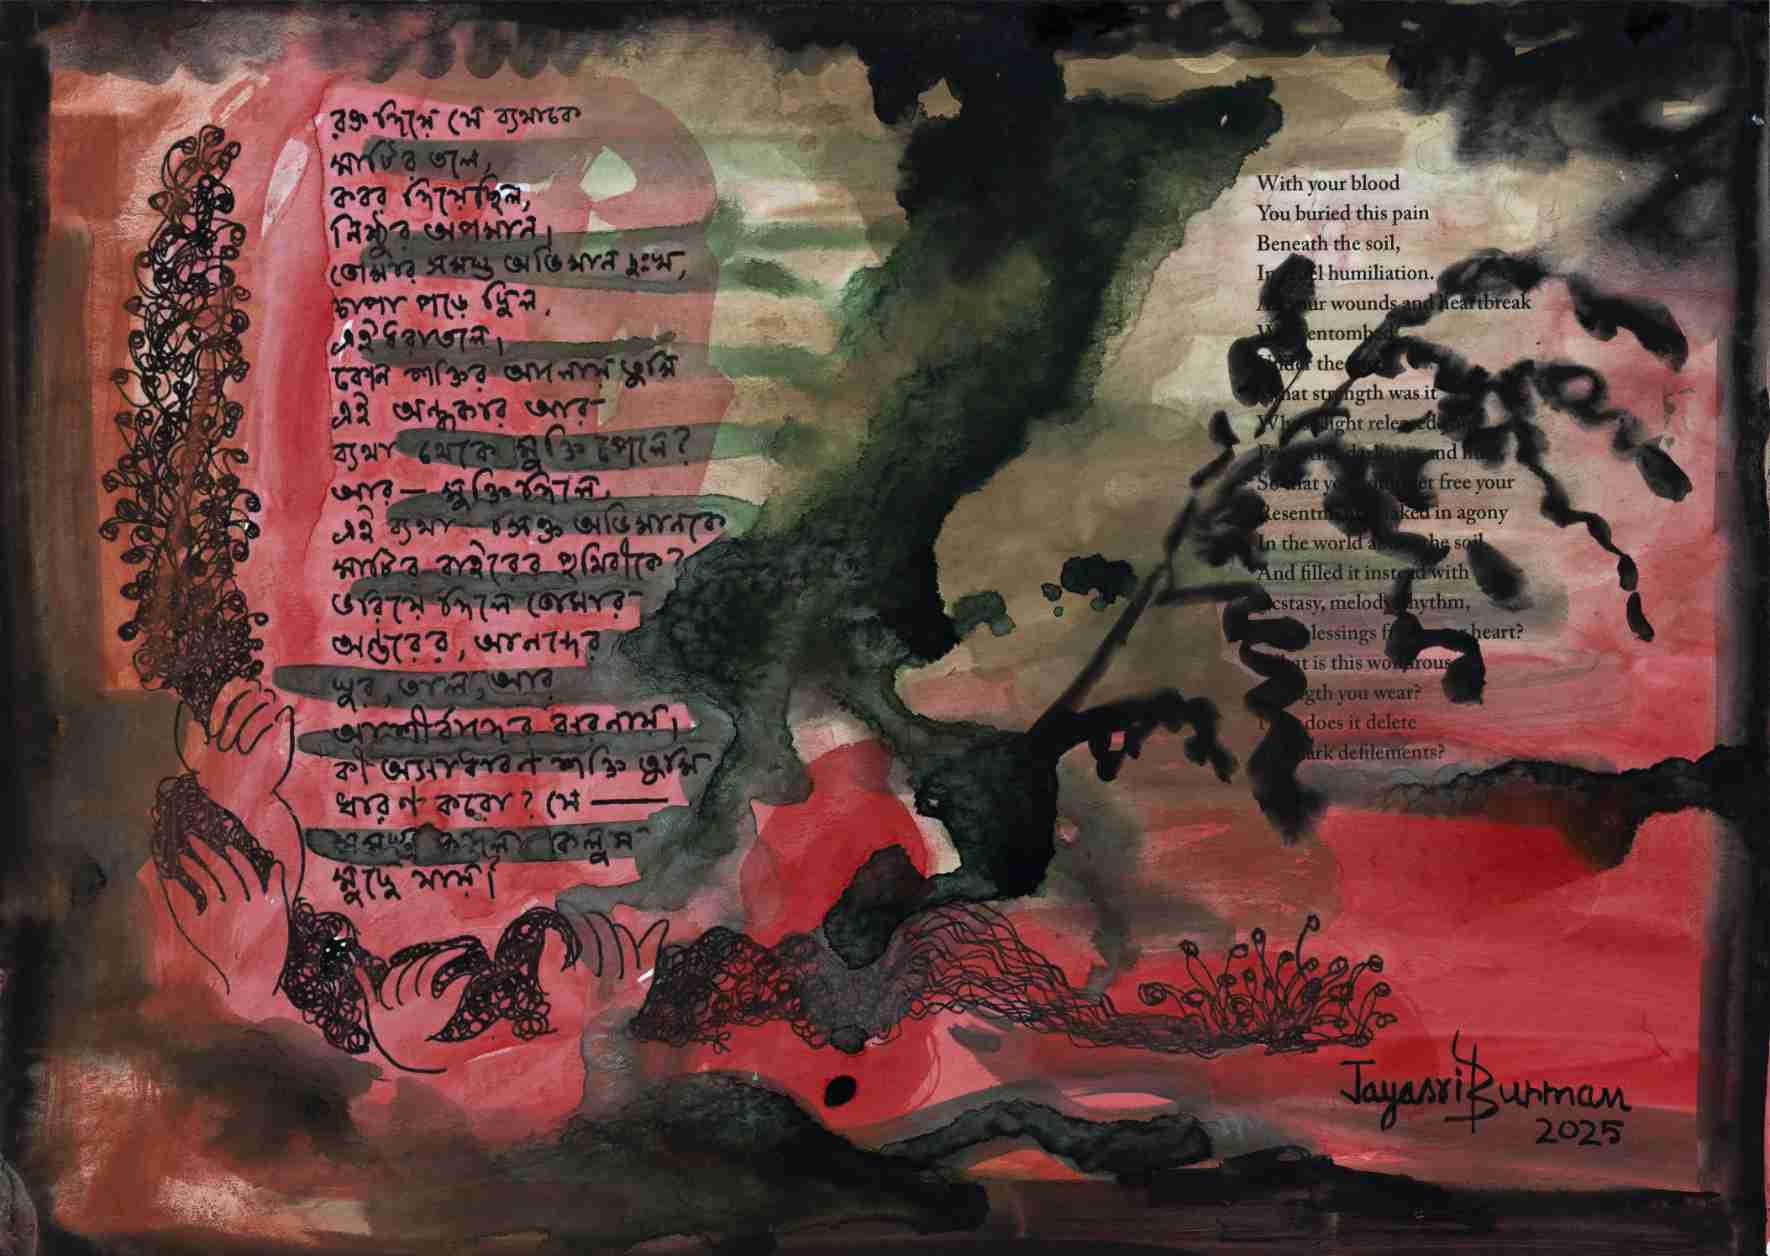 রক্ত দিয়ে সে ব্যথাকে
মাটির তলে,
কবর দিয়েছিল,
নিষ্ঠুর অপমান।
তোমার সমস্ত অভিমান দুঃখ,
চাপা পড়ে ছিল,
এই ধরাতলে।
কোন শক্তির আলোয় তুমি
এই অন্ধকার আর
ব্যথা থেকে মুক্তি পেলে?
আর— মুক্তি দিলে,
এই ব্যথা সিক্ত অভিমানকে
মাটির বাইরের পৃথিবীকে?
ভরিয়ে দিলে তোমার
অন্তরের, আনন্দের
সুর, তাল, আর
আশীর্বাদের ঝরনায়।
কী অসাধারণ শক্তি তুমি
ধারণ করো? সে —
সমস্ত কালো কলুষ
মুছে যায়।
With your blood
You buried this pain
Beneath the soil,
humiliation.
wounds and heartbreak
entombed
the
strength was it
light released
and
So that you set free your
in agony
In the world the soil
And filled it instead with
Ecstasy, melody, rhythm,
heart?
is this wondrous
you wear?
does it delete
dark defilements?
Jayasri Burman
2025